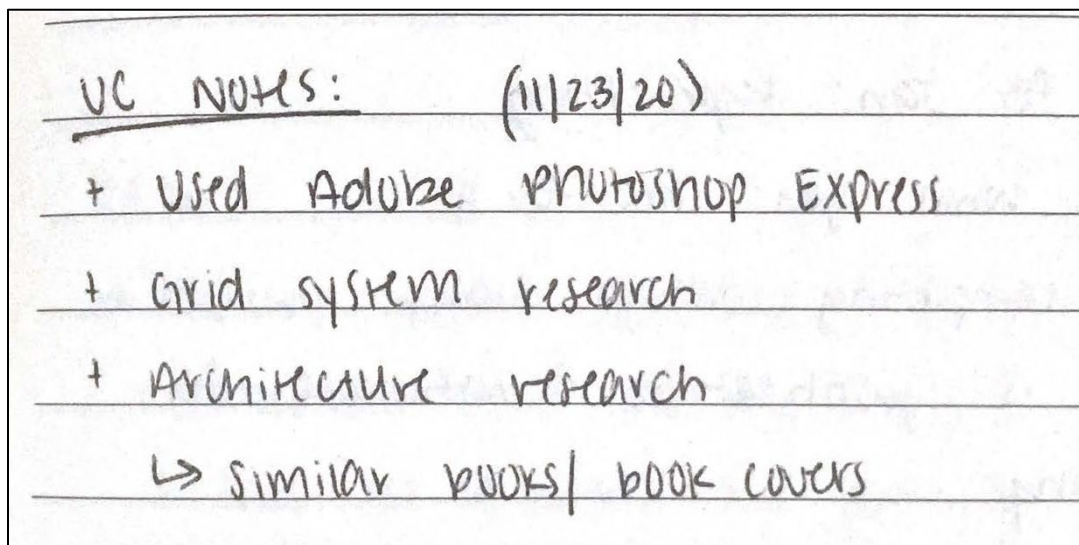 UC Notes: (11/23/20)
+ Used Adobe Photoshop Express
+ Grid system research
+ Architecture research
↳ similar books/ book covers